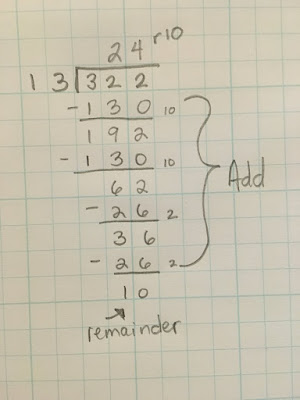 24 r10
13 322
-130 10
192
-130 10
62
-26 2
36
-26 2
10
Add
remainder